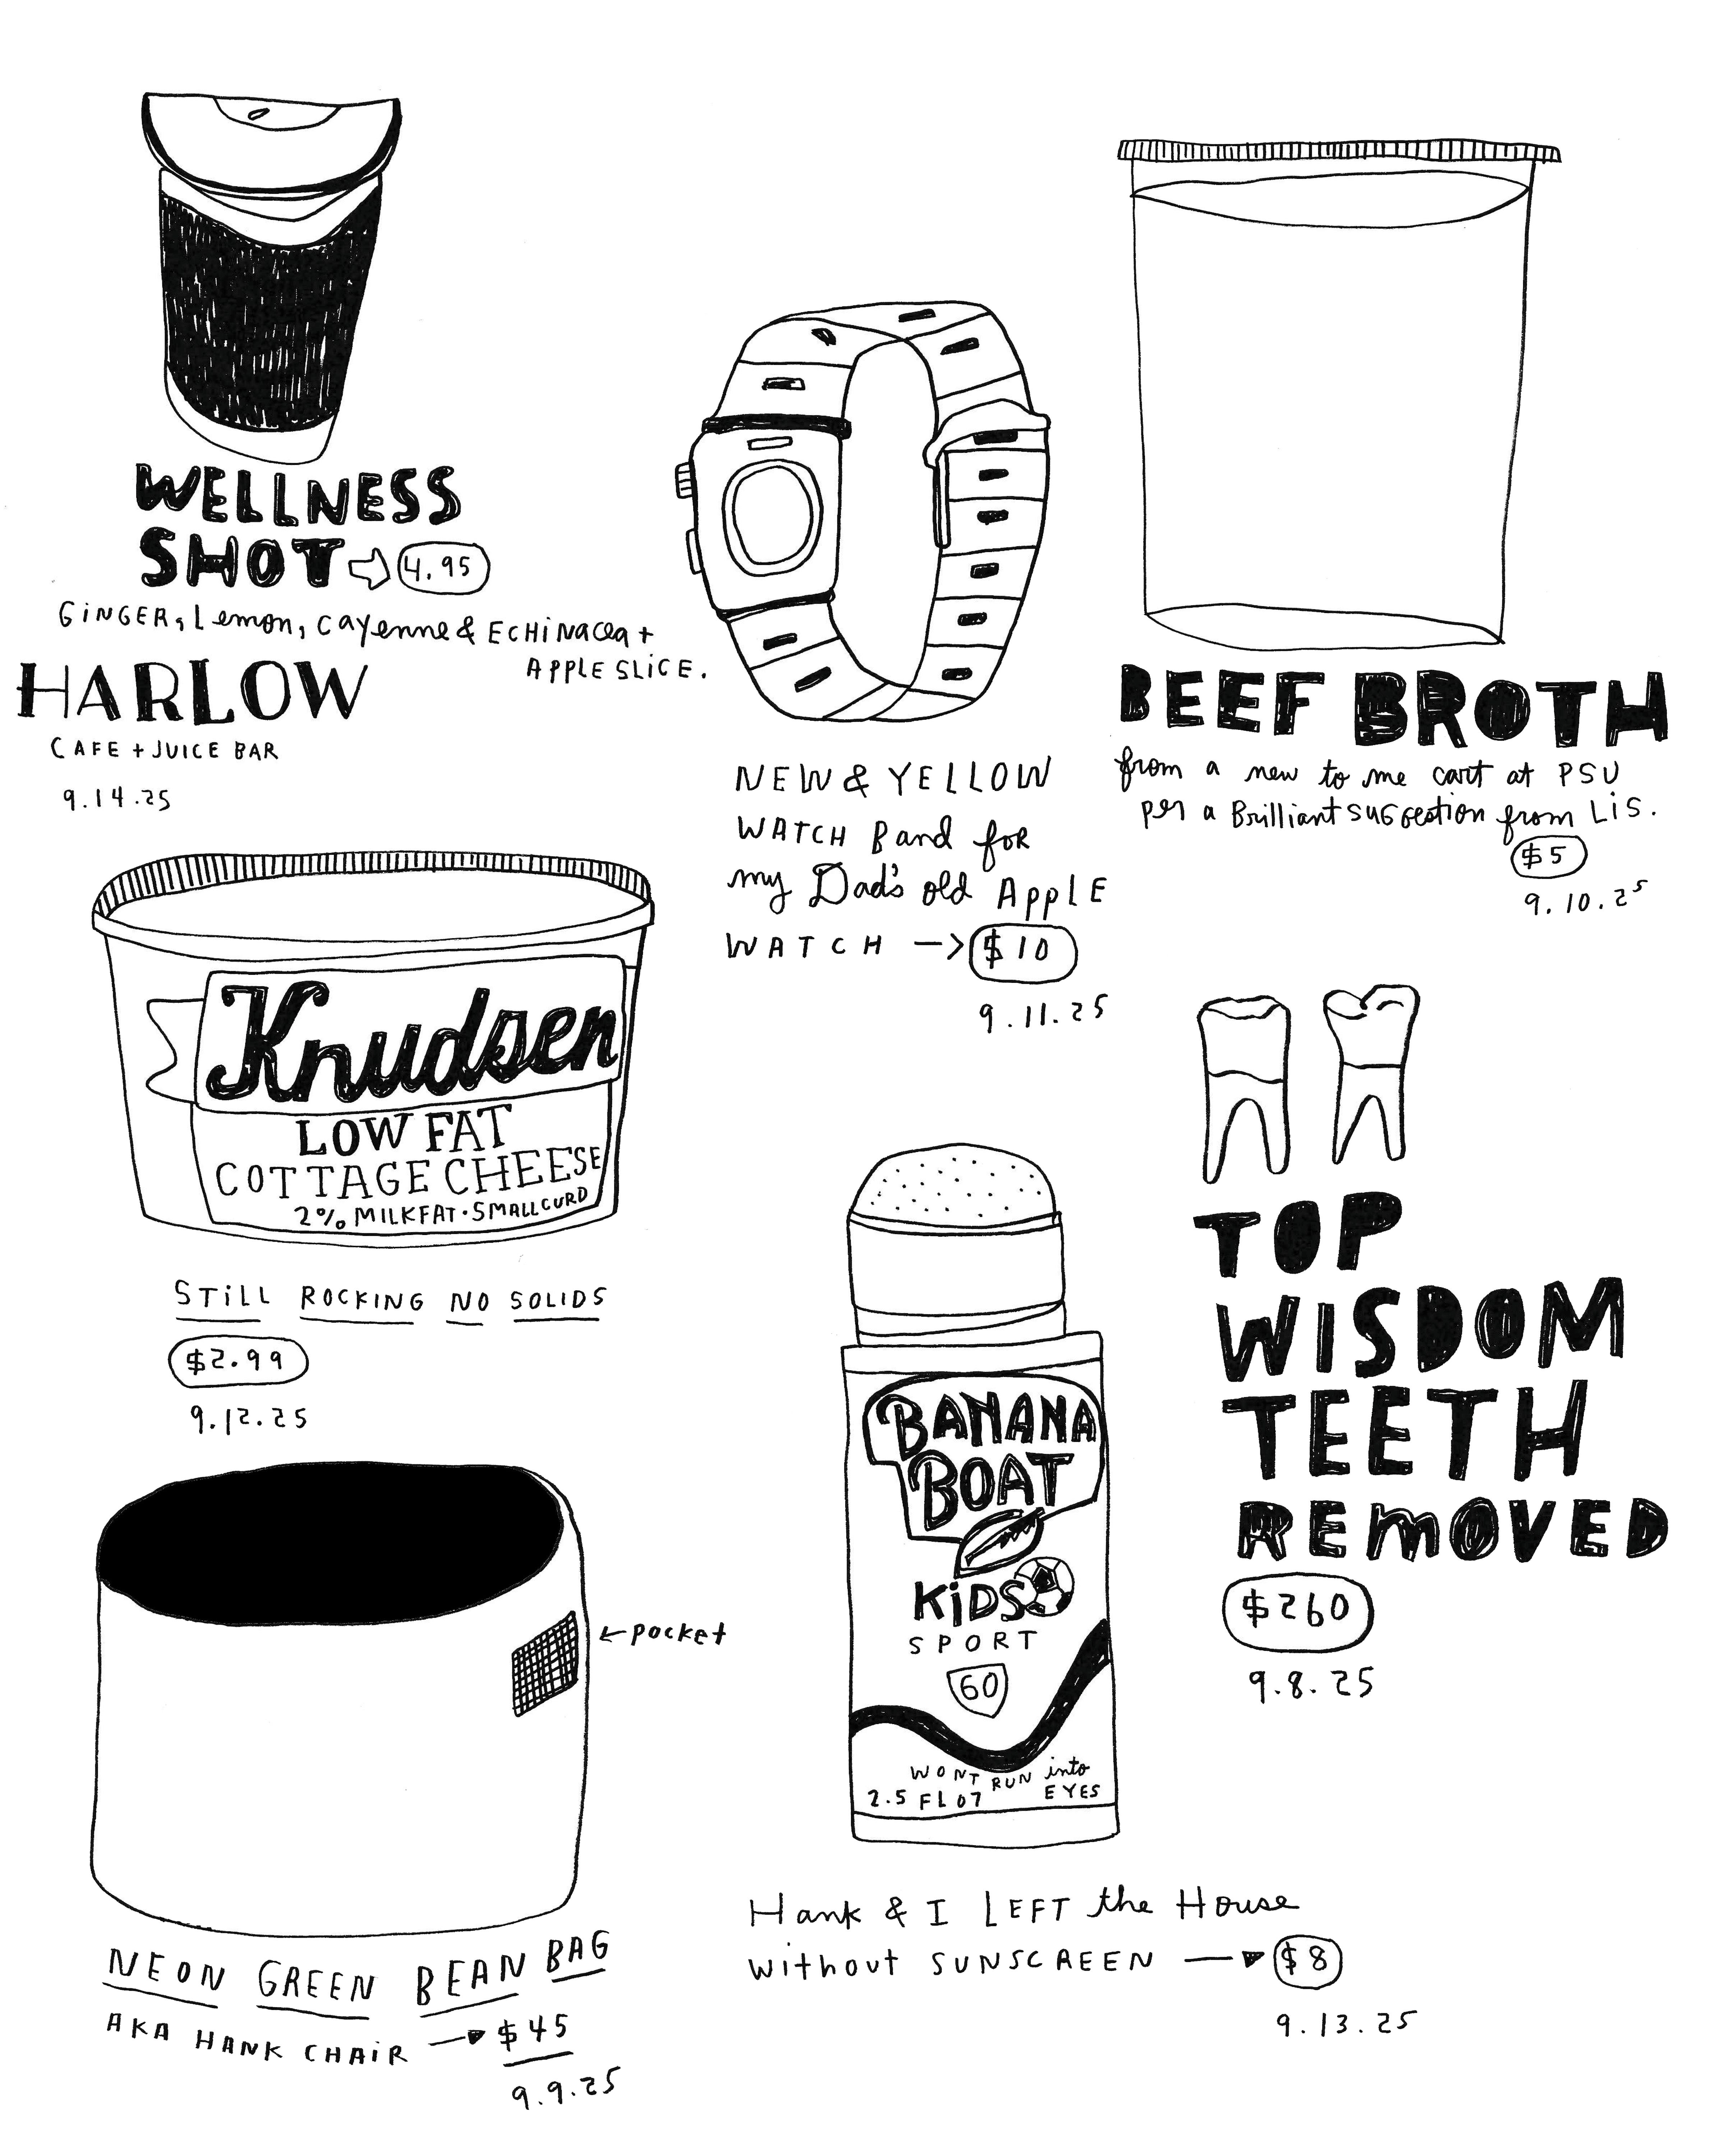 WELLNESS
SHOT 4.95
GINGER, Lemon, cayenne & ECHINacea +
APPLE SLICE.
HARLOW
CAFE + JUICE BAR
9.14.25
NEW & YELLOW
WATCH Band for
my Dad's old Apple
WATCH → $10
9.11.25
BEEF BROTH
from a new to me cart at PSU
per a Brilliant suggestion from Lis.
$5
9.10.25
Knudsen
LOW FAT
COTTAGE CHEESE
2% MILKFAT · SMALL CURD
STILL ROCKING NO SOLIDS
$2.99
9.12.25
TOP
WISDOM
TEETH
REMOVED
$260
9.8.25
BANANA
BOAT
KIDS
SPORT
60
WONT RUN into
EYES
2.5 FL OZ
Hank & I LEFT the House
without SUNSCREEN → $8
9.13.25
← pocket
NEON GREEN BEAN BAG
AKA HANK CHAIR → $45
9.9.25